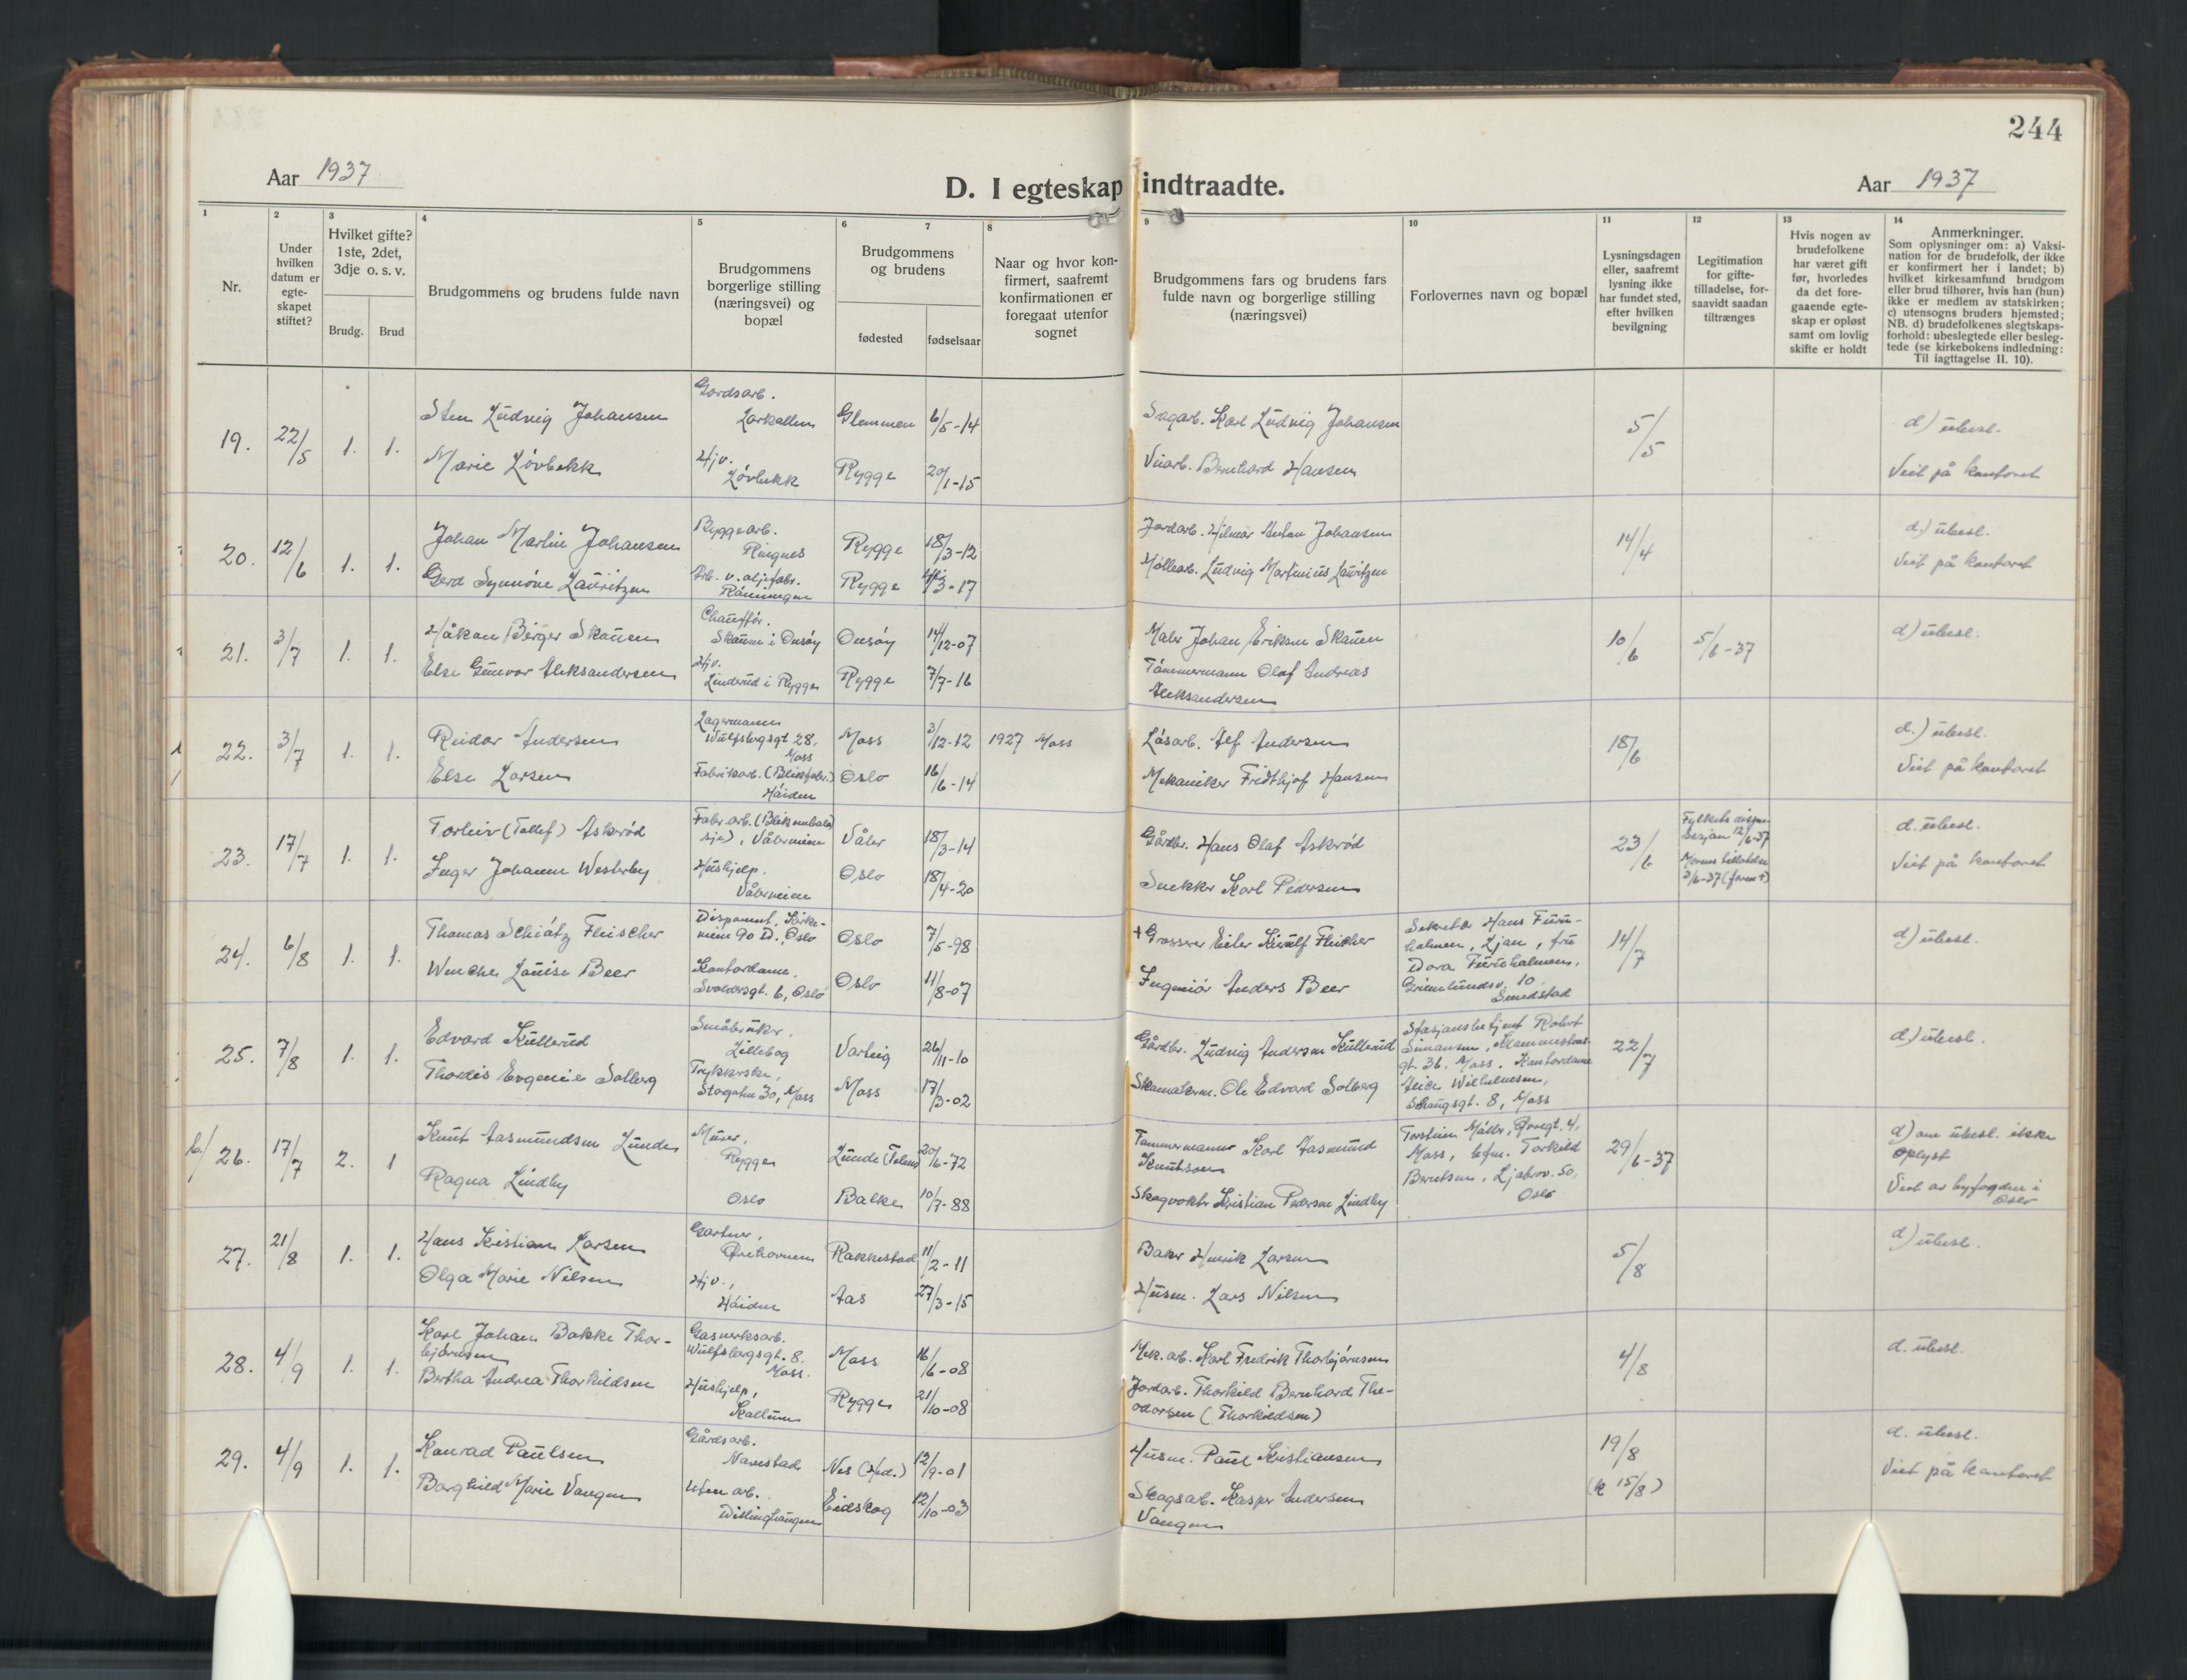 244
Aar 1937
D. I egteskap indtraadte.
Aar 1937
1
2
3
4
5
6
7
8
9
10
11
12
13
14
Nr.
Under
hvilken
datum er
egte-
skapet
stiftet?
Hvilket gifte?
1ste, 2det,
3dje o. s. v.
Brudg.
Brud
Brudgommens og brudens fulde navn
Brudgommens
borgerlige stilling
(næringsvei) og
bopæl
Brudgommens
og brudens
fødested
fødselsaar
Naar og hvor kon-
firmert, saafremt
konfirmationen er
foregaat utenfor
sognet
Brudgommens fars og brudens fars
fulde navn og borgerlige stilling
(næringsvei)
Forlovernes navn og bopæl
Lysningsdagen
eller, saafremt
lysning ikke
har fundet sted,
efter hvilken
bevilgning
Legitimation
for gifte-
tilladelse, for-
saavidt saadan
tiltrænges
Hvis nogen av
brudefolkene
har været gift
før, hvorledes
da det fore-
gaaende egte-
skap er opløst
samt om lovlig
skifte er holdt
Anmerkninger.
Som oplysninger om: a) Vaksi-
nation for de brudefolk, der ikke
er konfirmert her i landet; b)
hvilket kirkesamfund brudgom
eller brud tilhører, hvis han (hun)
ikke er medlem av statskirken;
c) utensogns bruders hjemsted;
NB. d) brudefolkenes slegtskaps-
forhold: ubeslegtede eller besleg-
tede (se kirkebokens indledning:
Til iagttagelse II. 10).
19. 22/5 1. 1.
Sten Ludvig Johansen
Marie Løvbekk
Gardsarb.
Larkollen
Hjv.
Løvbekk
Glemmen 6/5-14
Rygge 20/1-15
Sagarb. Karl Ludvig Johansen
Veiarb. Bernhard Hansen
5/5
d) ubesl.
Viet på kontoret
20. 12/6 1. 1.
Johan Martin Johansen
Gerd Synnøve Lauritzen
Byggearb.
Ringnes
Arb. v. oljefabr.
Rønningen
Rygge 18/3-12
Rygge 3-17
Jordarb. Hilmar Anton Johansen
Møllearb. Ludvig Martinius Lauritzen
14/4
d.) ubesl.
Viet på kontoret
21. 3/7 1. 1.
Håkon Birger Skauen
Else Gunvor Aleksandersen
Chauffør.
Skauen i Onsøy
Hjv.
Linderud i Rygge
Onsøy 14/12-07
Rygge 7/7-16
Maler Johan Eriksen Skauen
Tømmermann Olaf Andreas
Aleksandersen
10/6
5/6-37
d) ubesl.
22. 3/7 1. 1.
Reidar Andersen
Else Larsen
Lagermann
Wulfsbergsgt 28,
Moss
Fabrikarb. (Blikfabr.)
Høiden
Moss 3/12-12
Oslo 16/6-14
1927 Moss
Løsarb. Alf Andersen
Mekaniker Fridthjof Hansen
18/6
d.) ubesl.
Viet på kontoret
23. 17/7 1. 1.
Torleiv (Tollef) Askerød
Inger Johanne Westerby
Fabr. arb. (Blikemballa
sje), Vålerveien
Hushjelp.
Vålerveien
Våler 18/3-14
Oslo 18/4-20
Gårdbr. Hans Olaf Askerød
Snekker Karl Pedersen
23/6
Fylkets dispen
sasjon 12/6-37
Morens tillatelse
3/6-37 (faren +)
d. ubesl.
Viet på kontoret
24. 6/8 1. 1.
Thomas Schiøtz Fleischer
Wenche Louise Beer
Disponent, Kirke-
veien 90 D., Oslo
Kontordame,
Svoldersgt. 6, Oslo
Oslo 7/5-98
Oslo 11/8-07
+Grosserer Eiler Kierulf Fleischer
Ingeniør Anders Beer
Sekretær Hans Furu-
holmen, Ljan, fru
Dora Furuholmen,
Grimelundsv. 10
Smedstad
14/7
d) ubesl.
25. 7/8 1. 1.
Edvard Kullerud
Thordis Evgenie Solberg
Småbruker,
Lillebog
Trykkerske,
Storgaten 30, Moss
Varteig 26/11-10
Moss 17/3-02
Gårdbr. Ludvig Andersen Kullerud
Skomakerm. Ole Edvard Solberg
Stasjonsbetjent Robert
Simonsen,
gt. 36, Moss. Kontordame
Wilhelmsen,
Skougsgt. 8, Moss
22/7
d) ubesl.
26. 17/7 2. 1
Knut Aasmundsen Lunde
Ragna Lindby
Murer,
Rygge
Oslo
Lunde (Telem) 20/6-72
Balke 10/7-88
Tømmermann Karl Aasmund
Knutsen
Skogvokter Kristian Pedersen Lindby
Torstein Møller, Goregt. 4,
Moss, Torkild
Berntsen, Ljabrov. 50,
Oslo
29/6-37
d) om ubesl. ikke
oplyst
Viet av byfogden i
Oslo
27. 21/8 1. 1.
Hans Kristian Larsen
Olga Marie Nilsen
Gartner,
Ørehavnen
Hjv.,
Høiden
Rakkestad 11/2-11
Aas 27/3-15
Baker Henrik Larsen
Husm. Lars Nilsen
5/8
d) ubesl.
28. 4/9 1. 1.
Karl Johan Bakke Thor-
bjørnsen
Bertha Andrea Thorkildsen
Gasverksarb.
Wulfsbergsgt. 8,
Moss.
Hushjelp,
Kallum
Moss 16/6-08
Rygge 21/10-08
Mek. arb. Karl Fredrik Thorbjørnsen
Jordarb. Thorkild Bernhard The-
odorsen (Thorkildsen)
4/8
d. ubesl.
29. 4/9 1. 1.
Konrad Paulsen
Borghild Marie Vangen
Gårdsarb.
Navestad
Uten arb.
Dillinghaugen
Nes (Hed.) 12/9-01
Eidskog 12/10-03
Husm. Paul Kristiansen
Skogsarb. Kasper Andersen
Vangen
19/8
(k 15/8)
d. ubesl.
Viet på kontoret